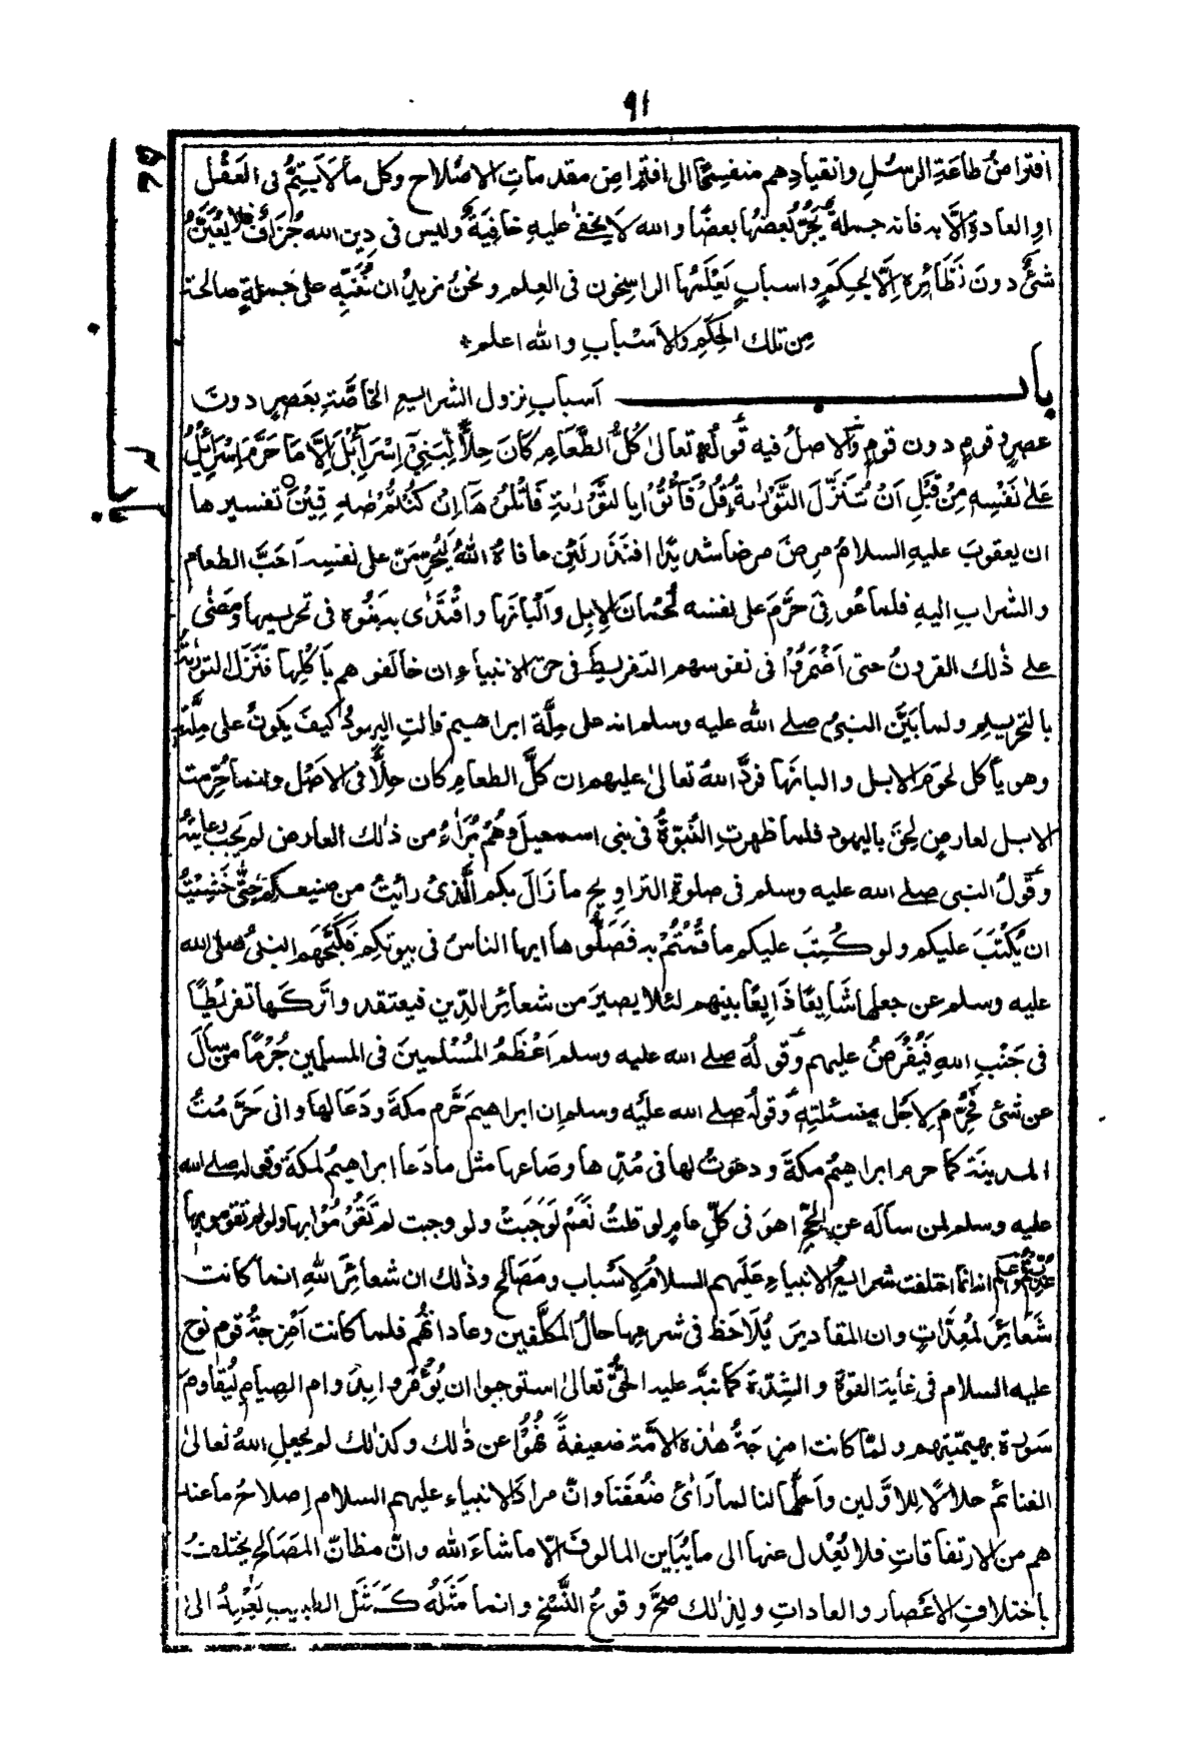 ٩١
افتراضُ طاعَةِ الرسُلِ وانقيادِهم منفسِحًا الى افتراضِ مقدماتِ الاصلاح وكل مالَا يَتِمُّ فى العَقْل
اوِ العادةِ اِلَّا به فانه جملةٌ يَجُرُّ بعضُها بعضًا والله لَا يخفى عليهِ خافِيَةٌ وليس فى دِين الله جُزَافٌ فلا يُعَيَّنُ
شئٌ دونَ نَظَائِرِه اِلَّا بحِكَمٍ واسبابٍ يَعْلَمُها الراسِخون فى العِلم ونحنُ نريدُ ان نُنَبِّهَ على جملةٍ صالحة
مِن تلك الحِكَمِ والاَسْبابِ والله اعلم
باب اَسبابِ نزول الشرائع الخاصَّةِ بعَصرٍ دونَ
عصرٍ وقومٍ دون قومٍ والاصلُ فيه قولُه تعالىٰ كُلُّ الطَّعَامِ كَانَ حِلًّا لِّبَنِىْٓ اِسْرَآئِيْلَ اِلَّا مَا حَرَّمَ اِسْرَآئِيْلُ
عَلىٰ نَفْسِهٖ مِنْ قَبْلِ اَنْ تُنَزَّلَ التَّوْرٰىةُ قُلْ فَأْتُوْا بِالتَّوْرٰىةِ فَاتْلُوْهَآ اِنْ كُنْتُمْ صٰدِقِيْنَ تفسيرها
ان يعقوبَ عليهِ السلامُ مرِضَ مرضا شديدًا فنَذَر لَئِن عافاهُ اللهُ لَيُحَرِّمَنّ على نفسِه اَحَبَّ الطعام
والشراب اليهِ فلما عُوفِىَ حرَّمَ على نفسه لُحمَانَ الاِبِل واَلْبانَها واقْتَدٰى به بَنُوه فى تحريمها ومَضٰى
على ذٰلك القرونُ حتى اَضْمَرُوْا فى نفوسهم التفريطَ فى حق الانبياءِ ان خالفوهم بأَكْلِها فنَزَل التورٰىةُ
بالتحريمِ ولما بَيَّنَ النبىُ صلى الله عليه وسلم انه على مِلَّة ابراهيم قالتِ اليهودُ كيفَ يكونُ على مِلَّتهٖ
وهو يأكل لحومَ الابل والبانَها فردَّ اللهُ تعالىٰ عليهم ان كلَّ الطعامِ كان حِلًّا فى الاَصْلِ وانما حُرِّمت
الابل لعارضٍ لحِقَ باليهود فلما ظهرتِ النُّبوَّةُ فى بنى اسمعيلَ وهُمْ بُرَاٰءُ من ذٰلك العارض لم يَجب رعايتُهٗ
وقولُ النبى صلى الله عليه وسلم فى صلوةِ التراويح ما زَالَ بكم الَّذِىْ رأيتُ من صنيعكم حتّٰى خَشِيْتُ
ان يُكْتَبَ عليكم ولو كُتِبَ عليكم ما قُمْتُمْ به فَصَلُّوها ايها الناسُ فى بيوتكم فكَبَحَهم النبىُ صلى الله
عليه وسلم عن جعلها شَائِعًا ذَائِعًا بينهم لئلا يصيرَ من شعائر الدِّين فيعتقد واتَرْكَها تفريطًا
فى جَنْبِ اللهِ فيُفْرَضُ عليهم وقولُه صلى الله عليه وسلم اَعْظَمُ المُسْلمينَ فى المسلمين جُرْمًا من سأَلَ
عن شئ فحُرِّمَ لِاَجْلِ مسئلتِهٖ وقولُه صلى الله عليه وسلم ان ابراهيمَ حَرَّم مكةَ ودَعَا لها وانى حَرَّمْتُ
المدينَةَ كما حرم ابراهيمُ مكةَ ودعَوتُ لها فى مُدِّها وصَاعِها مثل ما دَعا ابراهيمُ لمكةَ وقوله صلى الله
عليه وسلم لمن سأله عنِ الحجّ اهوَ فى كلِّ عامٍ لو قلتُ نَعَمْ لَوَجَبَتْ ولو وجبت لم تَقُوْمُوْا بها ولو لم تقوموا بها
عُذِّبتُم واعلم انه انما اختلفت شرايعُ الانبياءِ عَلَيهم السلامُ لِاَسْباب ومَصَالح وذٰلك ان شعائرَ اللهِ انما كانت
شَعائرَ لمُعِدَّاتٍ وان المقاديرَ يُلَاحَظُ فى شرعِها حالُ المكلَّفين وعاداتُهم فلما كانت اَمْزِجةُ قومِ نوحٍ
عليه السلام فى غايةِ القوّةِ والشِدّة كما نبَّه عليه الحقُّ تعالىٰ استوجبوا ان يُؤْمَروا بدوام الصِيامِ لِيُقاومَ
سَورةَ بهيمّيتهم ولمّا كانت امزِجَةُ هٰذه الاُمّة ضعيفةً نُهُوْا عن ذٰلك وكذٰلك لم يجعلِ اللهُ تعالىٰ
الغنائمَ حلالًا لِلاوَّلين واَحلَّها لنا لما رَاٰى ضُعْفَنا وانّ مرادَ الانبياء عليهم السلام اِصلاحُ ما عند
هم من الارتفاقاتِ فلا يُعْدَل عنها الى ما يُبَاين المالوفَ الّا ما شاءَ الله وانّ مظانّ المصَالح يختلفُ
باختلافِ الاَعْصار والعاداتِ ولِذٰلك صحَّ وقوعُ النَّسْخِ وانما مَثَلُهُ كَمَثَلِ الطبيبِ يَعْمِدُ الى